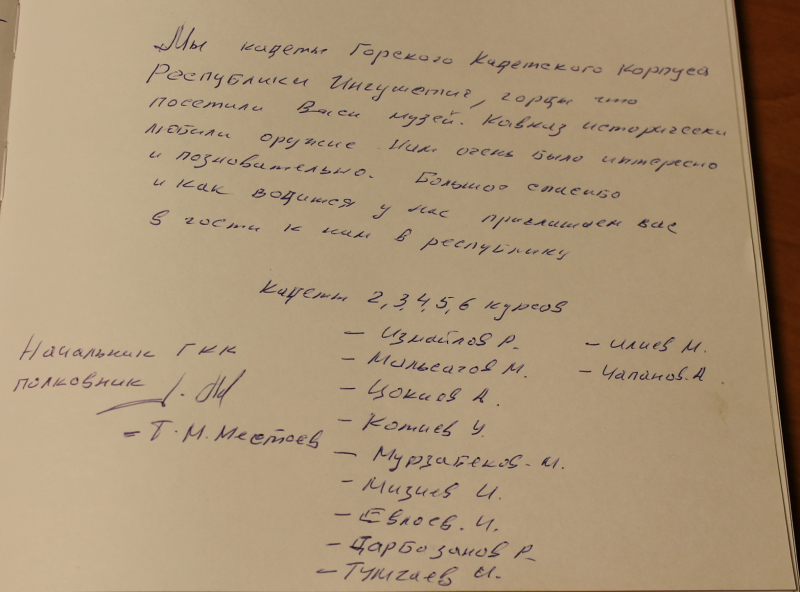 Мы кадеты Горского Кадетского Корпуса
Республики Ингушетия, горды что
посетили Ваш музей. Кавказ исторически
любили оружие. Нам очень было интересно
и позновательно. Большое спасибо
и как водится у нас приглашаем вас
в гости к нам в республику
Кадеты 2, 3, 4, 5, 6 курсов
- Измайлов Р.
- Илиев М.
- Мальсагов М.
- Чапанов А
- Цокиев А.
- Котиев У.
- Мурзабеков М.
- Мизиев И.
- Евлоев. И.
- Дарбазанов Р.
- Тумгаев И.
Начальник ГКК
полковник
- Т.М. Местоев